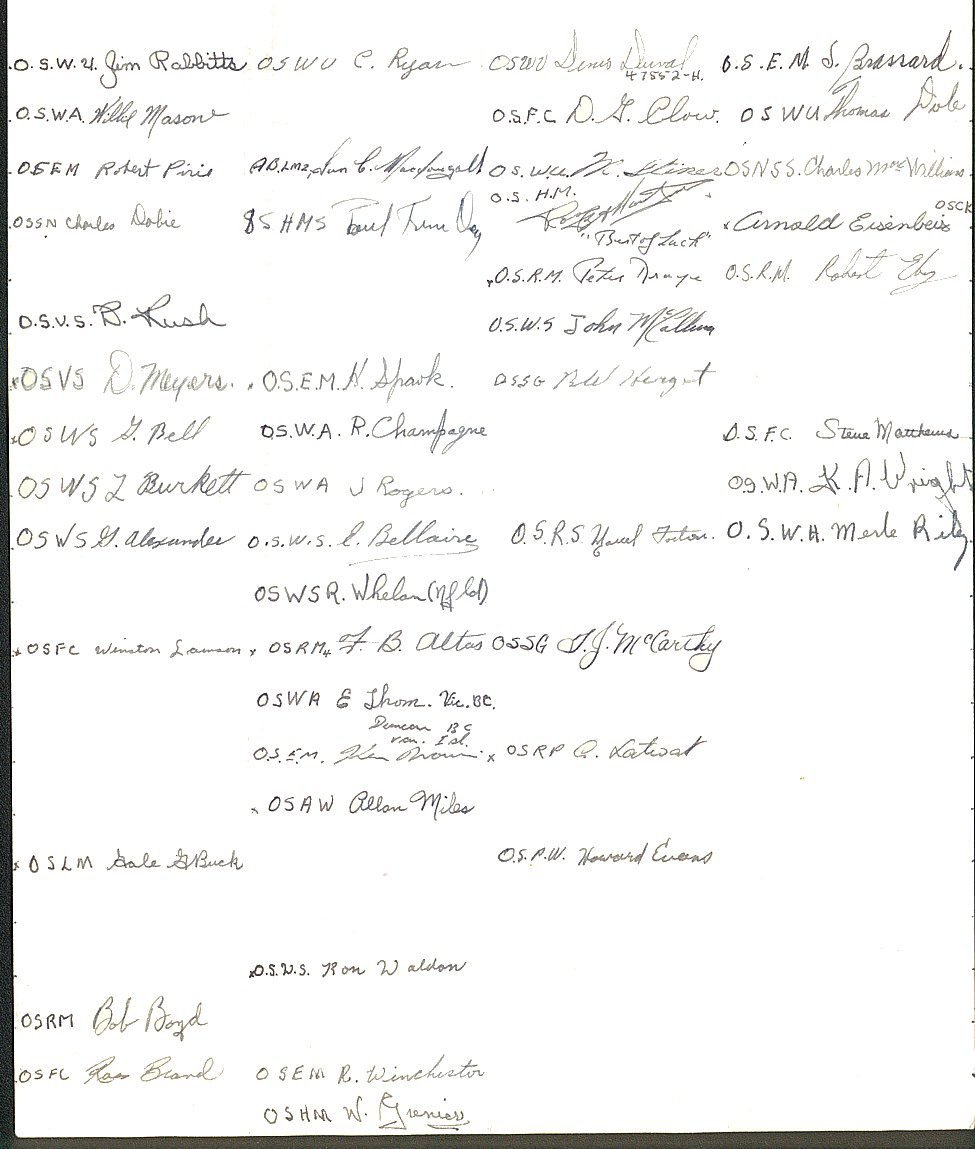 O.S.W.U. Jim Rabbitts OSWU C. Ryan OSWU Denis Duval O.S.E.M. J. Brassard.
47552-H.
O.S.W.A. Mason O.S.F.C D. G. Clow. O S W U Thomas Dobe
OSEM Robert Piris A.B.LM2, Ian C. Macdougall O S. W.U. M. OSNSS. Charles MacWilliams
O.S. H.M.
OSSN Charles Dobie OSHMS Paul "Best of Luck" Arnold Eisenbeis OSCK
O.S.R.M. Peter O.S.R.M. Robert Eby
O.S.V.S. B. Rush O.S.W.S John McCallum
OSVS D. Meyers. O.S.E.M. H. Spark. OSSG
OSWS G. Bell O.S.W.A. R. Champagne O.S.F.C. Steve Matthews
OSWS L Burkett OSWA J Rogers. O.S.W.A. K. A. Wright
OSWS G. Alexander O.S.W.S. C. Bellaire O.S.R.S. Marcel Fortin. O.S.W.A. Merle Riley
OSWS R. Whelan (Nfld)
OSFC Winston Lawson OSRM F. B. Altas OSSG T.J. McCarthy
OSWA E Thom. Vic. BC.
Duncan BC
Van. Isl.
O.S.E.M. Ken Brown OSRP
OSAW Allan Miles
OSLM Gale G Buck O.S.P.W. Howard Evans
O.S.V.S. Ron Waldon
OSRM Bob Boyd
OSFC Ross Brand OSEM R. Winchester
OSHM W. Grenier